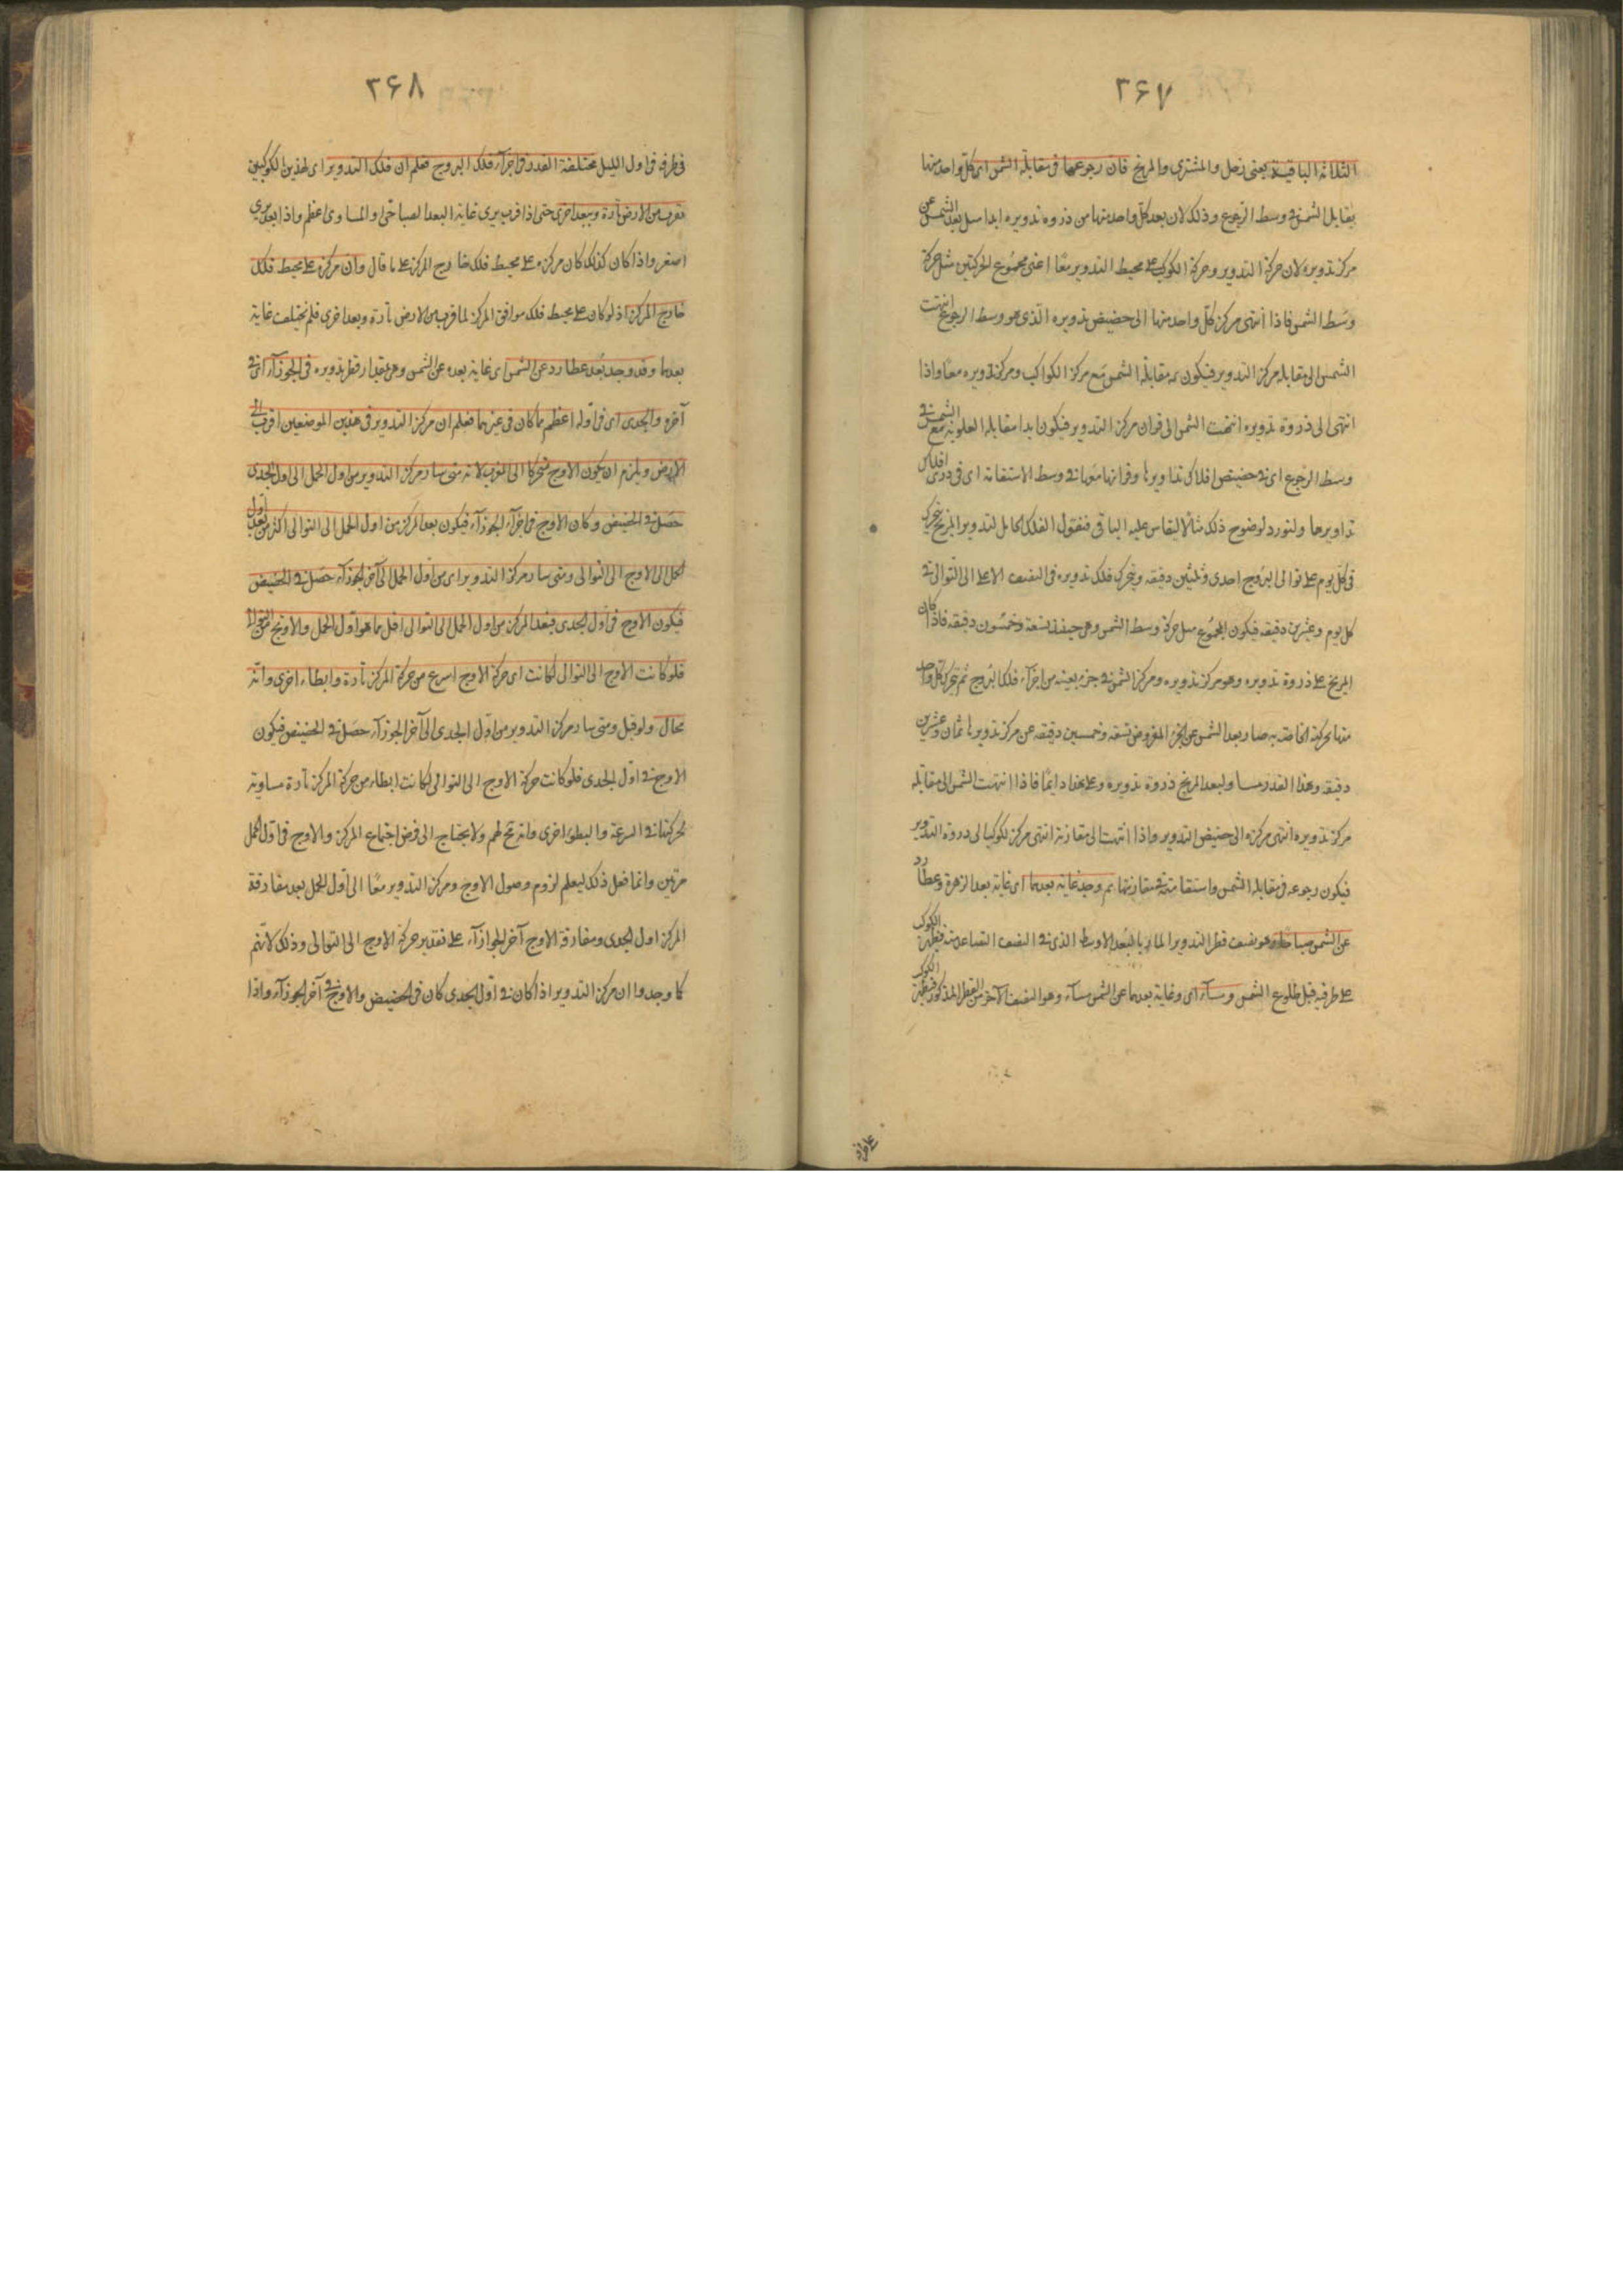 ۳۶۷
الثلاثة الباقية يعنى زحل والمشترى والمريخ فان رجوعها فى مقابلة الشمس اى كل واحد منها
يقابل الشمس فى وسط الرجوع وذلك لان بعد كل واحد منها من ذروه تدويره ابدا مثل بعد الشمس عن
مركز تدويره لان حركة التدوير وحركة الكوكب على محيط التدوير معًا اعنى مجموع الحركتين مثل حركة
وسط الشمس فاذا انتهى مركز كل واحد منها الى حضيض تدويره الذى هو وسط الرجوع انتهت
الشمس الى مقابله مركز التدوير فيكون مقابلة الشمس مع مركز الكواكب ومركز تدويره معًا واذا
انتهى الى ذروة تدويره انتهت الشمس الى قران مركز التدوير فيكون ابدا مقابله العلويه مع الشمس فى
وسط الرجوع اى فى حضيض افلاك تداويرها وقرانها معها فى وسط الاستقامة اى فى ذرى افلاك
تداويرها ولنورد لوضوح ذلك مثالًا ليقاس عليه الباقى فنقول الفلك الحامل لتدوير المريخ يتحرك
فى كل يوم على توالى البروج احدى وثلثين دقيقه ويتحرك فلك تدويره فى النصف الاعلى الى التوالى فى
كل يوم وعشرين دقيقه فيكون المجموع مثل حركة وسط الشمس وهى حينئذ تسعة وخمسون دقيقه فاذا كان
المريخ على ذروة تدويره وهو مركز تدويره ومركز الشمس فى جزء بعينه من اجزآء فلك البروج ثم يتحرك كل واحد
منها بحركته الخاصة به صار بعد الشمس عن الجزء المفروض تسعه وخمسين دقيقه عن مركز تدويرها ثمان وعشرين
دقيقه وهذا القدر مساو لبعد المريخ ذروة تدويره وعلى هذا دايمًا فاذا انتهت الشمس الى مقابله
مركز تدويره انتهى مركزه الى حضيض التدوير واذا انتهت الى مقارنة انتهى مركز الكوكب الى ذروة التدوير
فيكون رجوعه فى مقابلة الشمس واستقامته فى مقارنتها ثم وجد غاية بعدهما اى غاية بعد الزهرة وعطارد
عن الشمس صباحًا وهو نصف قطر التدوير المار بالبعد الاوسط الذى فى النصف الصاعد منه فيظهر الكوكب
على طرفيه قبل طلوع الشمس ومسآء اى وغاية بعدهما عن الشمس مسآء وهو النصف الآخر من القطر المذكور فيظهر الكوكب
۳۶۸
فى طرفه فى اول الليل مختلفة القدر فى اجزآء فلك البروج فعلم ان فلك التدوير اى لهذين الكوكبين
تقرب من الارض تارة ويبعد اخرى حتى اذا قرب يرى غاية البعد الصباحى او المساوى اعظم واذا بعد يرى
اصغر واذا كان كذلك كان مركزه على محيط فلك خارج المركز على ما قال وان مركزه على محيط فلك
خارج المركز اذ لو كان على محيط فلك موافق المركز لما قرب من الارض تارة وبعد اخرى فلم تختلف غاية
بعدهما وقد وجد بُعد عطارد عن الشمس اى غاية بعده عن الشمس وهى مقدار قطر تدويره فى الجوزآء اى فى
آخره والجدى اى فى اوله اعظم مما كان فى غيرهما فعلم ان مركز التدوير فى هذين الموضعين اقرب الى
الارض ويلزم ان يكون الاوج متحركا الى المغرب لانه متى سار مركز التدوير من اول الحمل الى اول الجدى
حصل فى الحضيض وكان الاوج فى اجزآء الجوزآء فيكون بعد المركز من اول الحمل الى التوالى اكثر من بعد اول
الحمل الى الاوج الى التوالى ومتى سار مركز التدوير اى من اول الحمل الى آخر الجوزآء حصل فى الحضيض
فيكون الاوج فى اول الجدى فبعد المركز من اول الحمل الى التوالى اقل مما هو اول الحمل والاوج من التوالى
فلو كانت الاوج الى التوالى لكانت اى حركة الاوج اسرع من حركة المركز تارة وابطاء اخرى وانه
محال ولو قيل ومتى سار مركز التدوير من اول الجدى الى آخر الجوزآء حصل فى الحضيض فيكون
الاوج فى اول الجدى فلو كانت حركة الاوج الى التوالى لكانت ابطاء من حركة المركز تارة مساوية
لحركتها فى السرعة والبطؤ اخرى وانه تم لهم ولا يحتاج الى فرض اجتماع المركز والاوج فى اول الحمل
مرتين وانما فعل ذلك ليعلم لزوم وصول الاوج ومركز التدوير معًا الى اول الحمل بعد مفارقة
المركز اول الجدى ومفارقة الاوج آخر الجوازآء على تقدير حركة الاوج الى التوالى وذلك لانهم
كما وجدوا ان مركز التدوير اذا كان فى اول الجدى كان فى الحضيض والاوج فى آخر الجوزآء واذا